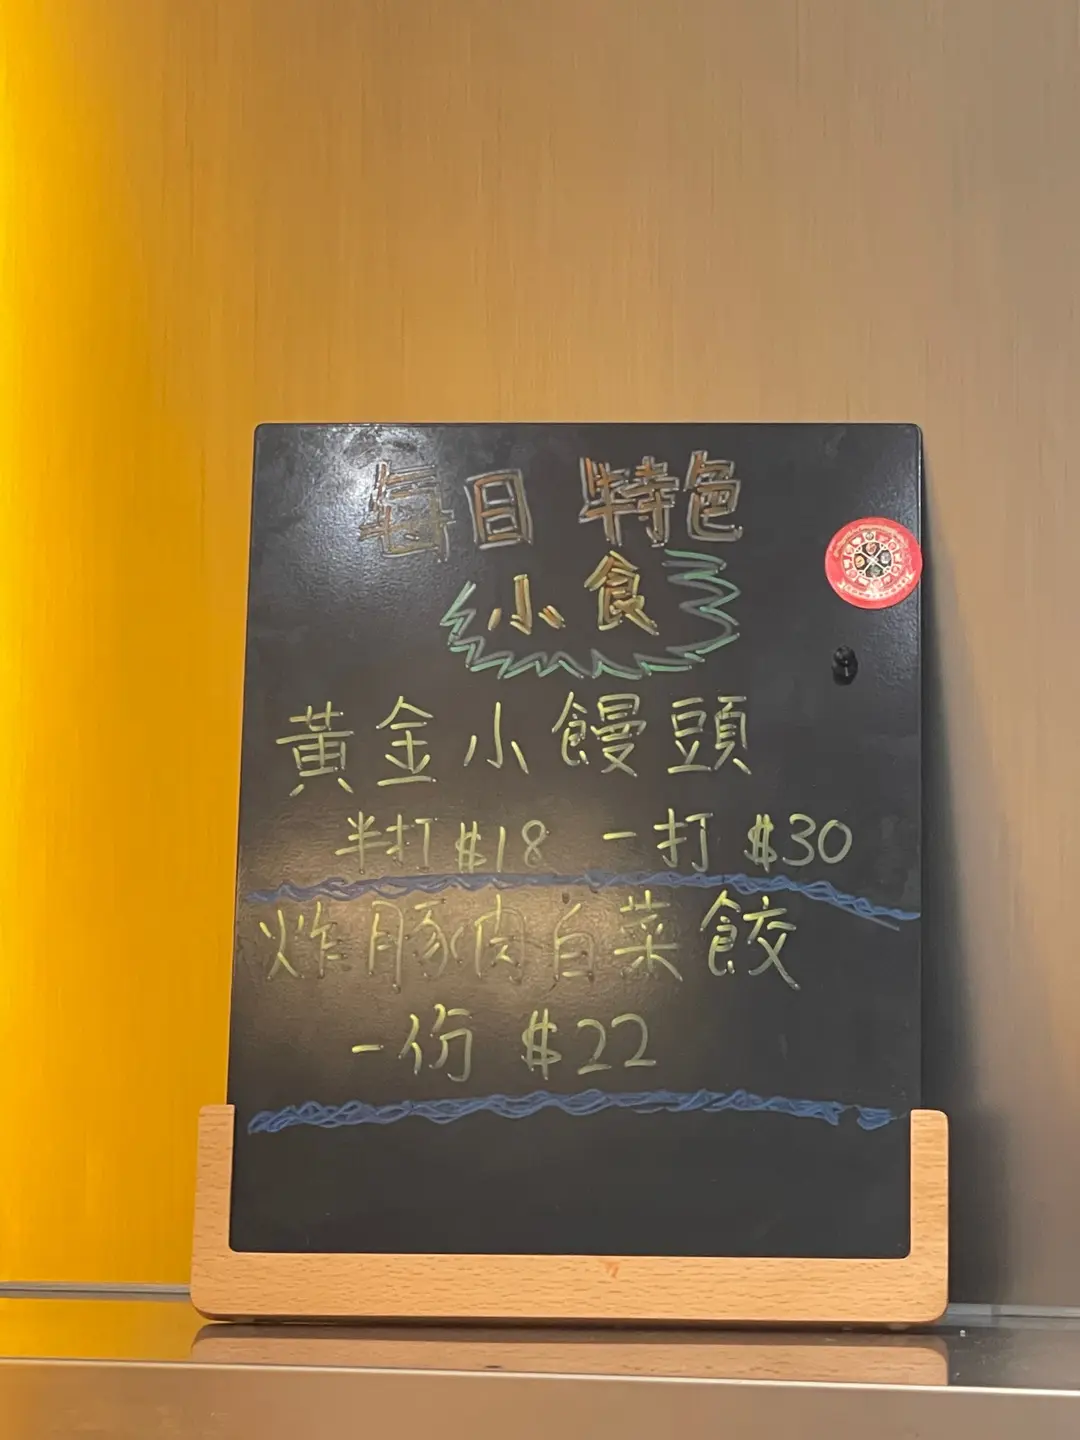 每日 特色
小食
黃金小饅頭
半打 $18 一打 $30
炸豚肉白菜餃
一份 $22